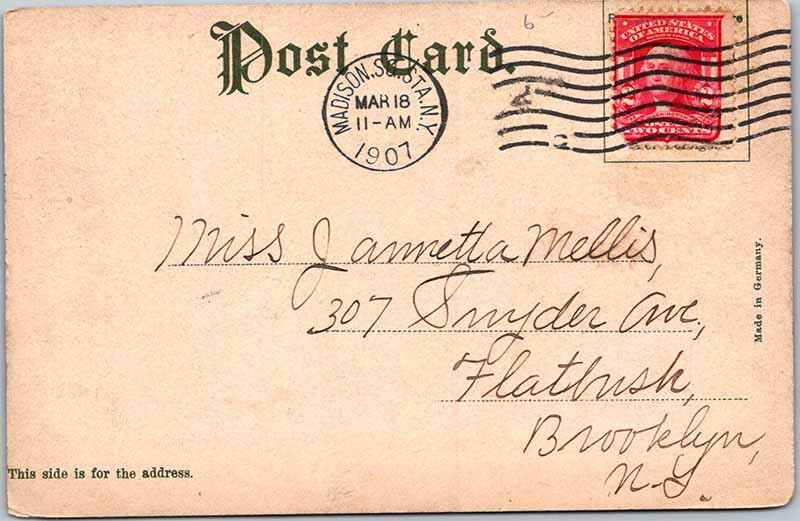 6
Post Card.
MADISON.SQ.STA.N.Y.
MAR 18
11-AM
1907
UNITED STATES
OF AMERICA
2 2
TWO CENTS
Miss Jannetta Mellis,
307 Snyder Ave.,
Flatbush,
Brooklyn,
N.Y.
Made in Germany.
This side is for the address.